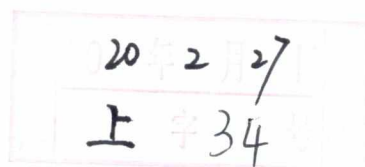 20年2月27
上字34